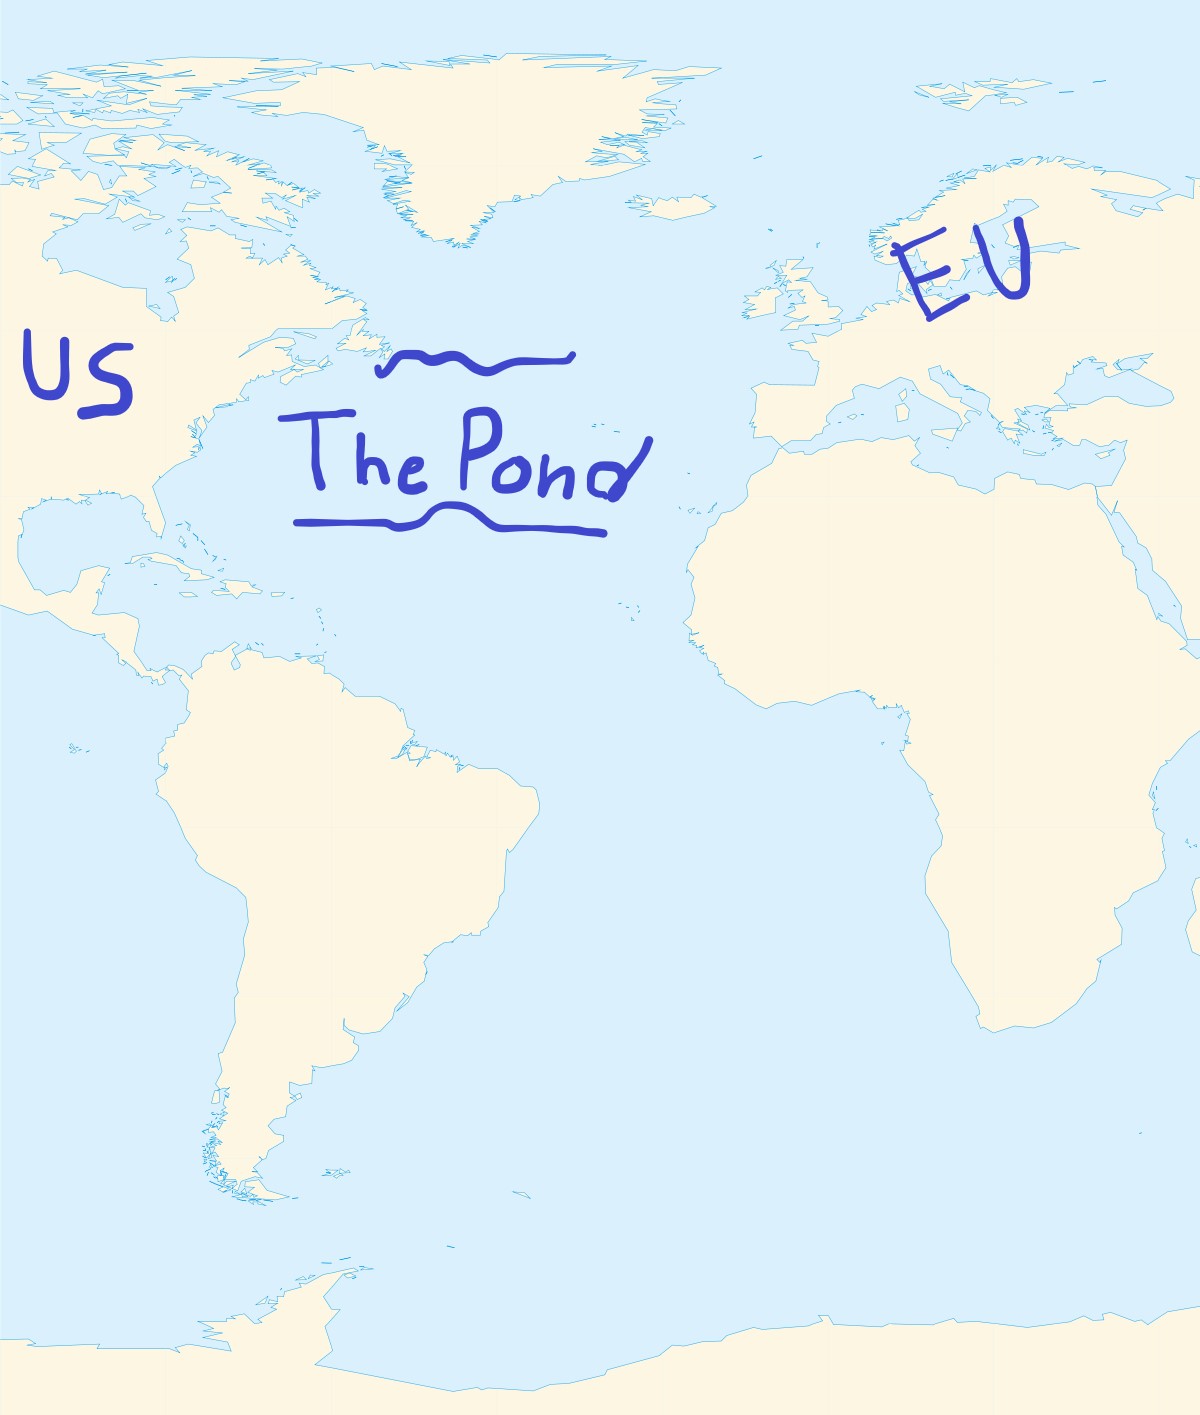 US
The Pond
EU